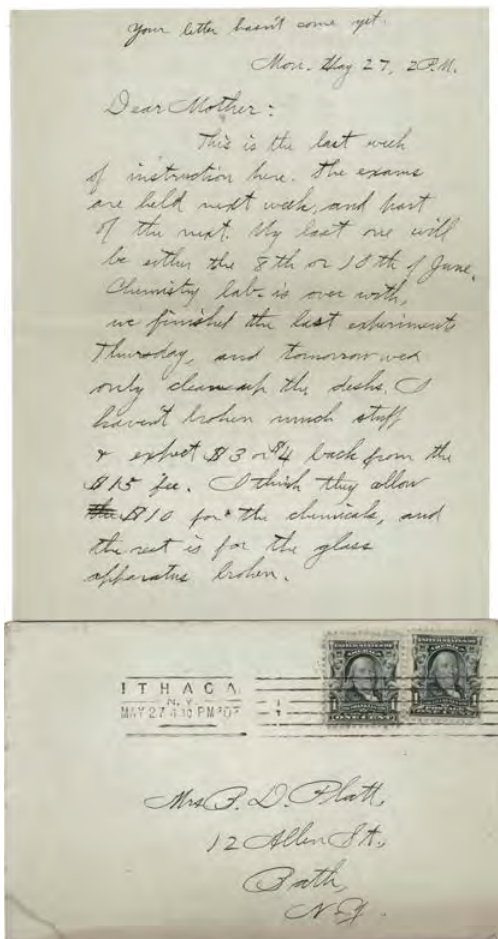 Your letter hasn't come yet.
Mon. May 27, 2 P.M.
Dear Mother:
This is the last week
of instruction here. The exams
are held next week, and part
of the next. My last one will
be either the 8th or 10th of June.
Chemistry lab. is over with,
we finished the last experiments
Thursday, and tomorrow we
only clean up the desks. I
haven't broken much stuff
& expect $3 or $4 back from the
$15 fee. I think they allow
the $10 for the chemicals, and
the rest is for the glass
apparatus broken.
ITHACA
N.Y.
MAY 27 4 30 PM '07
UNITED STATES OF AMERICA
1 1
ONE CENT
UNITED STATES OF AMERICA
1 1
ONE CENT
Mrs. F. D. Platt,
12 Allen St.,
Bath,
N.Y.